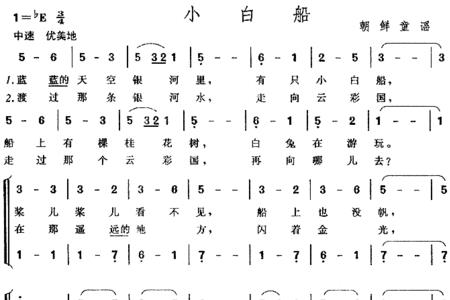 小白船
1=♭E 3/4
朝鲜童谣
中速 优美地
5 - 6 | 5 - 3 | 5 321 | 5 - - | 6 - 1 | 2 - 5 | 3 - - | 3 - - |
1.蓝 蓝的 天 空 银 河 里, 有 只 小 白 船,
2.渡 过 那 条 银 河 水, 走 向 云 彩 国,
5 - 6 | 5 - 3 | 5 321 | 5 - - | 6 - 1 | 5 - 2 | 1 - - | 1 - - |
船 上 有 棵 桂 花 树, 白 兔 在 游 玩。
走 过 那 个 云 彩 国, 再 向 哪 儿 去?
3 - 3 | 3 - 2 | 3 - 6 | 5 - - | 3 - 2 | 3 - 6 | 5 - - | 5 - - |
桨 儿 桨 儿 看 不 见, 船 上 也 没 帆,
在 那 遥 远的 地 方, 闪 着 金 光,
1 - 1 | 1 - 7 | 6 - 6 | 7 - - | 1 - 7 | 6 - 6 | 7 - - | 7 - - |